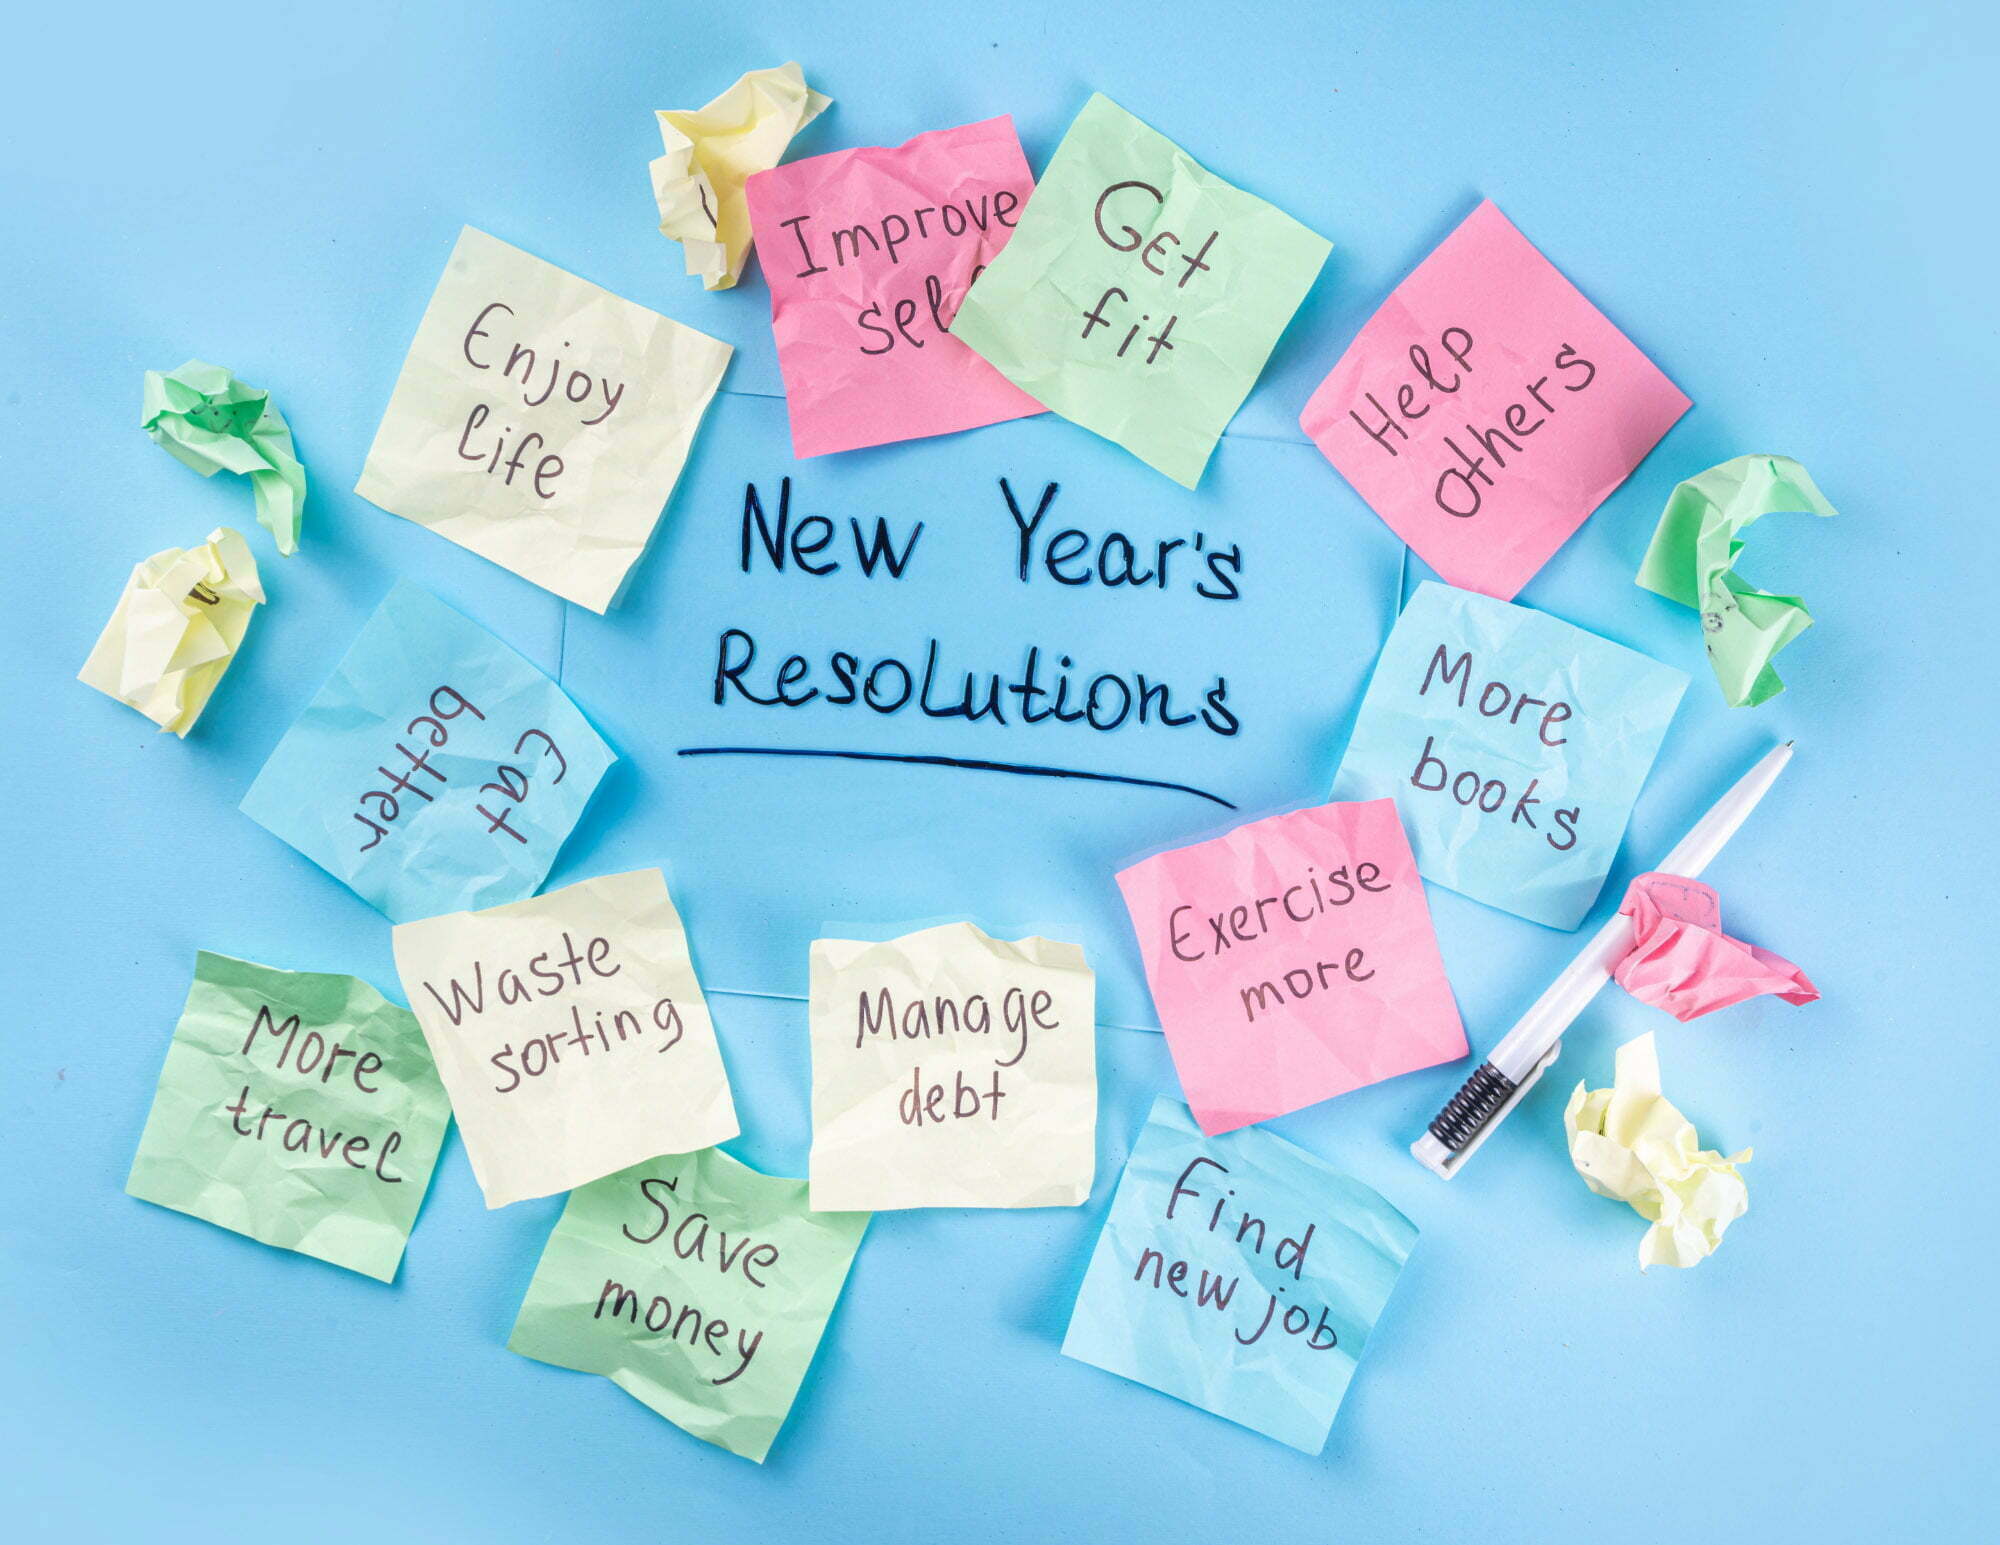 New Year's
Resolutions
Enjoy
Life
Improve
Get
fit
Help
Others
More
books
Exercise
more
Find
new job
Manage
debt
Save
money
Waste
sorting
More
travel
Eat
better